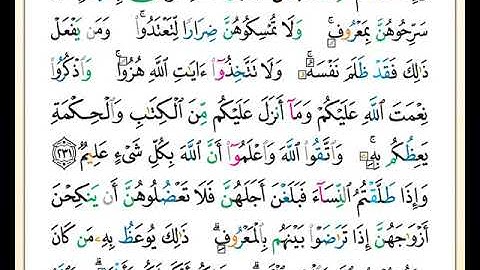 سَرِّحُوهُنَّ بِمَعْرُوفٍ ۚ وَلَا تُمْسِكُوهُنَّ ضِرَارًا لِّتَعْتَدُوا۟ ۚ وَمَن يَفْعَلْ
ذَٰلِكَ فَقَدْ ظَلَمَ نَفْسَهُۥ ۚ وَلَا تَتَّخِذُوٓا۟ ءَايَٰتِ ٱللَّهِ هُزُوًا ۚ وَٱذْكُرُوا۟
نِعْمَتَ ٱللَّهِ عَلَيْكُمْ وَمَآ أَنزَلَ عَلَيْكُم مِّنَ ٱلْكِتَٰبِ وَٱلْحِكْمَةِ
يَعِظُكُم بِهِۦ ۚ وَٱتَّقُوا۟ ٱللَّهَ وَٱعْلَمُوٓا۟ أَنَّ ٱللَّهَ بِكُلِّ شَىْءٍ عَلِيمٌ ﴿٢٣١﴾
وَإِذَا طَلَّقْتُمُ ٱلنِّسَآءَ فَبَلَغْنَ أَجَلَهُنَّ فَلَا تَعْضُلُوهُنَّ أَن يَنكِحْنَ
أَزْوَٰجَهُنَّ إِذَا تَرَٰضَوْا۟ بَيْنَهُم بِٱلْمَعْرُوفِ ۗ ذَٰلِكَ يُوعَظُ بِهِۦ مَن كَانَ